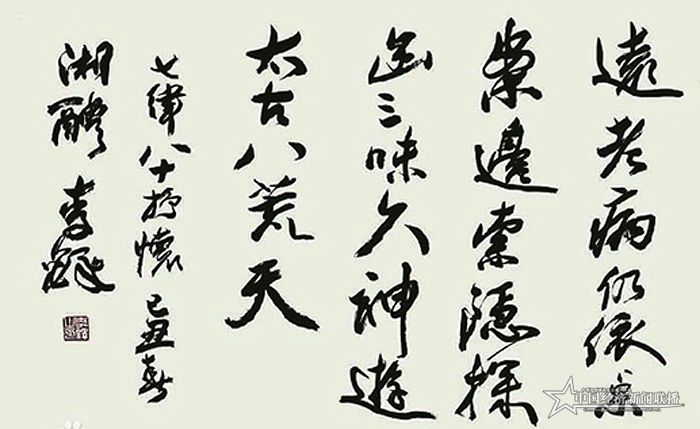 遠老病仍依書
案邊索隱探
幽三味久神遊
太古八荒天
七律八十抒懷 己丑春
湘醴 李鐸
中国经济新闻联播